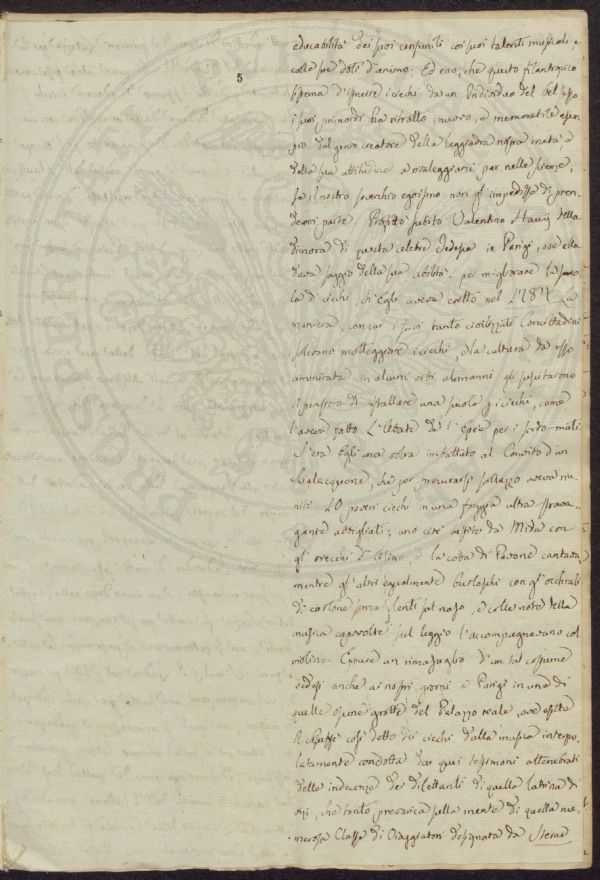 5
educabilità dei suoi consimili coi suoi talenti musicali e
colle sue doti d'animo. Ed ecco, che questo filantropico
sistema d'istruire i ciechi da un Individuo del bel sesso
i suoi primordi ha ritratto, nuovo, e memorabile esem-
pio del genio creatore della leggiadra nostra metà e
della sua attitudine a rivaleggiarci pur nelle scienze,
se il nostro soverchio egoismo non gl'impedisse di pren-
dervi parte. Profittò subito Valentino Haüy della
dimora di questa celebre Tedesca in Parigi, ove ella
dava saggio della sua abilità, per migliorare la scuo-
la di ciechi, ch'Egli aveva eretto nel 1784. La
maniera, con cui i suoi tanto civilizzati Concittadini
solevano motteggiare i ciechi, e la cultura da esso
ammirata in alcuni orbi alemanni gli suscitarono
il pensiero di istallare una scuola p i ciechi, come
l'aveva fatto L'Abate de l'Epée per i sordo-muti
S'era Egli una volta imbattuto al Convito d'un
Scialacquone, che per procurarsi sollazzo aveva riu-
niti 10 poveri ciechi in una foggia ultra strava-
gante abbigliati; uno cioè vestito da Mida con
gli orecchi d'Asino, e la coda di Pavone cantava,
mentre gl'altri egualmente burleschi con gl'occhiali
di cartone senza lenti sul naso, e colle note della
musica capovolte sul leggio l'accompagnavano col
violino. Eppure un rimasuglio d'un tal costume
vedesi anche ai nostri giorni a Parigi in una di
quelle oscure grotte del Palazzo reale, ove esiste
il Caffè così detto dei ciechi dalla musica interpo-
latamente condotta da qui testimoni attenebrati
delle indecenze dei dilettanti di quella latrina di
vizi, che tanto prevarica sulla mente di quella nu-
merosa Classe di Viaggiatori designata da Sterne